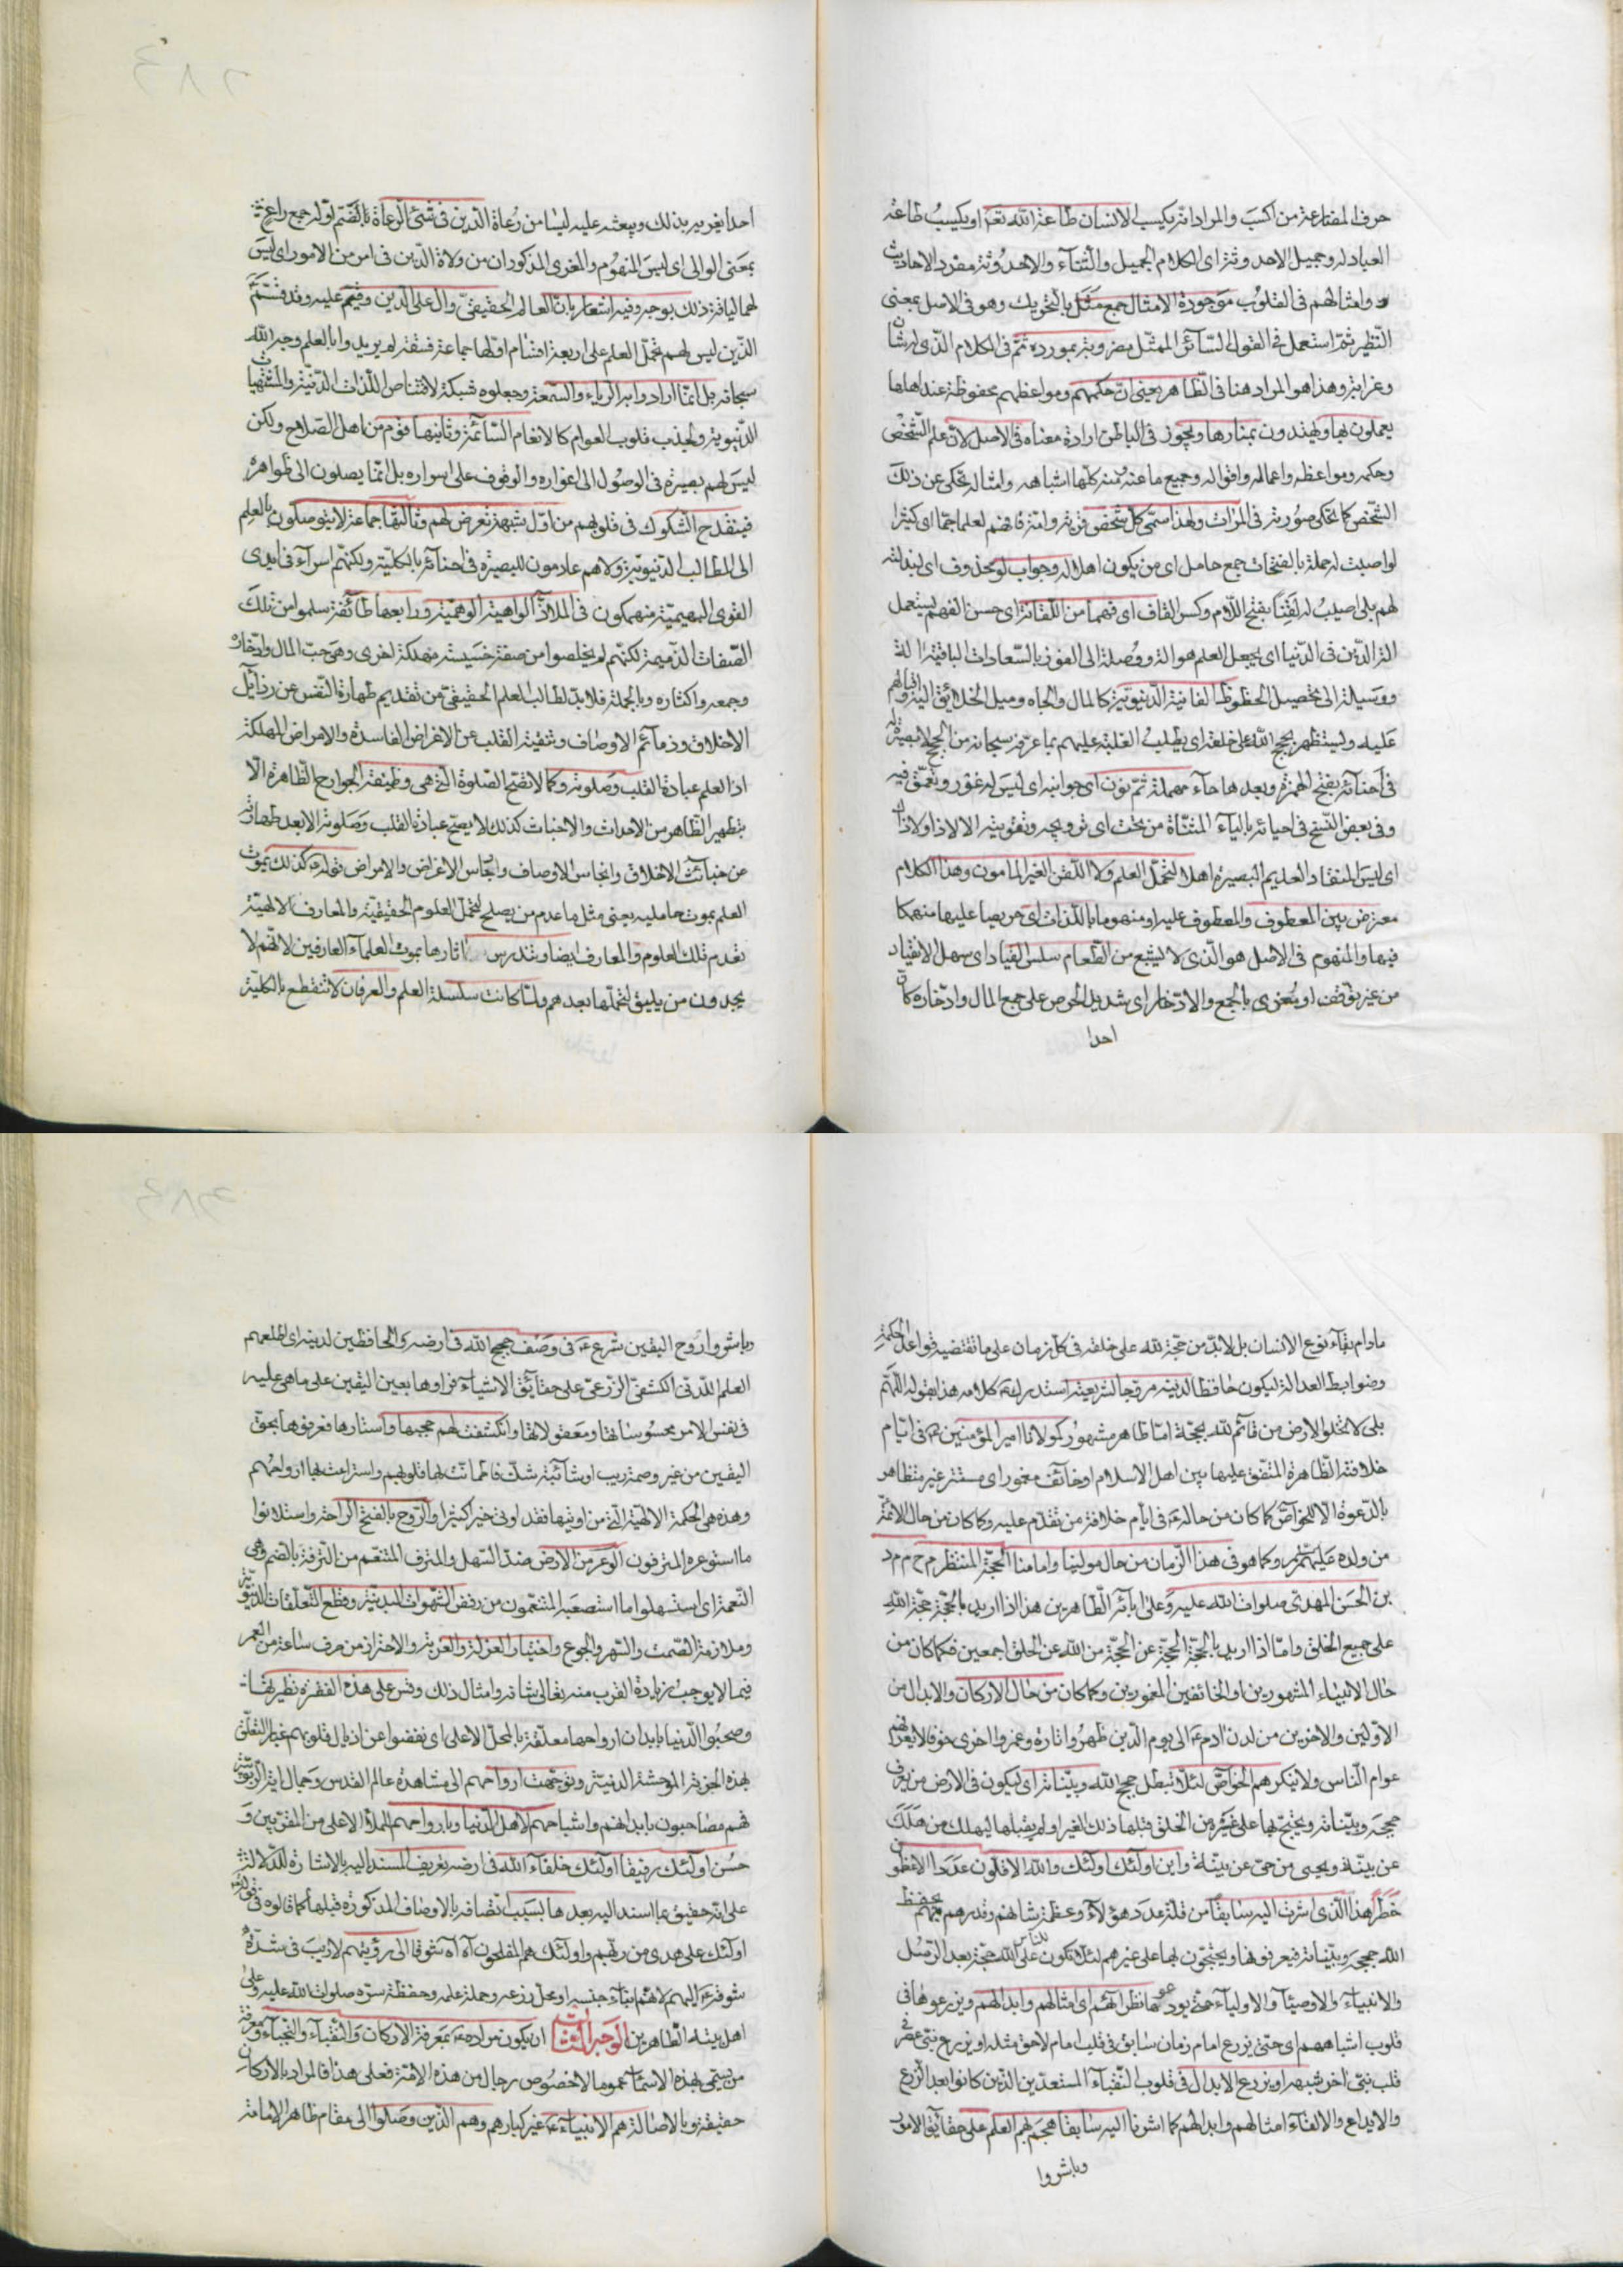 حرف المضارعة من اكسب والمراد انه يكسب الانسان طاعة الله تعه او يكسب طاعة
العباد له وجميل الاحدوثة اى الكلام الجميل والثناء والاحدوثة مفرد الاحاديث
وامثالهم فى القلوب موجودة الامثال جمع مثل بالتحريك وهو فى الاصل بمعنى
النظير ثم استعمل فى القول السائر الممثل مضربه بمورده ثم فى الكلام الذى له شان
وغرابة وهذا هو المراد هنا فى الظاهر يعنى ان حكمهم ومواعظهم محفوظة عند اهلها
يعملون بها ويهتدون بمنارها ويجوز فى الباطن ارادة معناه فى الاصل لان علم الشخص
وحكمه ومواعظه واعماله واقواله وجميع ما عنه منه كلها اشباهه وامثاله تحكى عن ذلك
الشخص كما تحكى صورته فى المرات ولهذا سمى كل شخص فهم لعلما جما اى كثيرا
لو اصبت له حملة بالفتحات جمع حامل اى من يكون اهلا له وجواب لو محذوف اى لبذلته
لهم بلى اصيب له لقنا بفتح اللام وكسر القاف اى فهما من اللقانة اى حسن الفهم يستعمل
الة الدين فى الدنيا اى يجعل العلم هو الة ووصلة الى الفوز بالسعادات الباقية الة
ووسيلة الى تحصيل الحظوظ الفانية الدنيوية كالمال والجاه وميل الخلائق اليه واقبالهم
عليه وليستظهر بحجج الله على خلقه اى يطلب الغلبة عليهم بما عرفه سبحانه من الحجج لا بصيرة له
فى احنائه بفتح الهمزة وبعدها حاء مهملة ثم نون اى جوانبه اى ليس له غور وتعمق فيه
وفى بعض النسخ فى احيائه بالياء المثناة من تحت اى ترويجه وتقويته الا لا ذا ولا ذاك
اى ليس المنقاد العديم البصيرة اهلا لتحمل العلم ولا اللقن الغير المامون وهذا الكلام
معترض بين المعطوف والمعطوف عليه او منهوما باللذات اى حريصا عليها منهمكا
فيها والمنهوم فى الاصل هو الذى لا يشبع من الطعام سلس القياد اى سهل الانقياد
من غير توقف او مغرى بالجمع والادخار اى شديد الحرص على جمع المال وادخاره كان
احدا
احدا يغريه بذلك ويبعثه عليه ليسا من رعاة الدين فى شئ الرعاة بالضم اوله جمع راعى
بمعنى الوالى اى ليس المنهوم والمغرى المذكوران من ولاة الدين فى امر من الامور اى ليس
لهما لياقة ذلك بوجه وفيه اشعار بان العالم الحقيقى وال على الدين وقيم عليه وقد قسم
الذين ليس لهم تحمل العلم على اربعة اقسام اولها جماعة فسقة لم يريدوا بالعلم وجه الله
سبحانه بل انما ارادوا به الرياء والسمعة وجعلوه شبكة لاقتناص اللذات الدنية والمشتهيات
الدنيوية ولجذب قلوب العوام كالانعام السائمة وثانيها قوم من اهل الصلاح ولكن
ليس لهم بصيرة فى الوصول الى اغواره والوقوف على اسراره بل انما يصلون الى ظواهره
فينقدح الشكوك فى قلوبهم من اول شبهة تعرض لهم وثالثها جماعة لا يتوصلون بالعلم
الى المطالب الدنيوية ولا هم عادمون للبصيرة فى احنائه بالكلية ولكنهم اسراء فى ايدى
القوى البهيمية منهمكون فى الملاذ الواهية الوهمية ورابعها طائفة سلموا من تلك
الصفات الذميمة لكنهم لم يخلصوا من صفة خسيسة مهلكة اخرى وهى حب المال وادخاره
وجمعه واكثاره وبالجملة فلا بد لطالب العلم الحقيقى من تقديم طهارة النفس عن رذائل
الاخلاق وذمائم الاوصاف وتنقية القلب عن الاغراض الفاسدة والامراض المهلكة
اذ العلم عبادة القلب وصلوته وكما لا تصح الصلوة التى هى وظيفة الجوارح الظاهرة الا
بتطهير الظاهر من الاحداث والاخباث كذلك لا يصح عبادة القلب وصلوته الا بعد طهارته
عن خبائث الاخلاق وانجاس الاوصاف وانجاس الاغراض والامراض قوله كذلك يموت
العلم بموت حامليه يعنى مثل ما عدم من يصلح لتحمل العلوم الحقيقية والمعارف الالهية
تعدم تلك العلوم والمعارف ايضا وتندرس اثارها بموت العلماء العارفين لانهم لا
يجدون من يليق لتحملها بعدهم ولما كانت سلسلة العلم والعرفان لا تنقطع بالكلية
مادام بقاء نوع الانسان بل لا بد من حجة لله على خلقه فى كل زمان على ما تقتضيه قواعد الحكمة
وضوابط العدالة ليكون حافظا لدينه مروجا لشريعته استدرك كلامه هذا بقوله اللهم
بلى لا تخلو الارض من قائم لله بحجة اما ظاهر مشهور كمولانا امير المؤمنين فى ايام
خلافته الظاهرة المتفق عليها بين اهل الاسلام او خائف مغمور اى مستتر غير متظاهر
بالدعوة الا للخواص كما كان من حاله فى ايام خلافة من تقدم عليه وكما كان من حال الائمة
من ولده عليهم وكما هو فى هذا الزمان من حال مولينا وامامنا الحجة المنتظر م ح م د
بن الحسن المهدى صلوات الله عليه وعلى آبائه الطاهرين هذا اذا اريد بالحجة حجة الله
على جميع الخلق واما اذا اريد بالحجة الحجة عن الحجة من الله عن الخلق اجمعين فكما كان من
حال الانبياء المشهورين او الخائفين المغمورين وكما كان من حال الاركان والابدال من
الاولين والاخرين من لدن ادم الى يوم الدين ظهروا تارة وغمروا اخرى خوفا لا يعرفهم
عوام الناس ولا ينكرهم الخواص لئلا تبطل حجج الله وبيناته اى ليكون فى الارض من يعرف
حججه وبيناته ويحتج بها على غيره من الخلق قبلها ذلك الغير او لم يقبلها ليهلك من هلك
عن بينة ويحيى من حى عن بينة واين اولئك اولئك والله الاقلون عددا الاعظمون
خطرا هذا الذى اشرت اليه سابقا من قلة عدد هؤلاء وعظمة شانهم وقدرهم بهم يحفظ
الله حججه وبيناته فيعرفونها ويحتجون بها على غيرهم لئلا تكون للناس على الله حجة بعد الرسل
والانبياء والاوصياء والاولياء حتى يودعوها نظرائهم اى امثالهم وابدالهم ويزرعوها فى
قلوب اشباههم اى حتى يزرع امام زمان سابق فى قلب امام لاحق مثله او يزرع نبى عصر فى
قلب نبى اخر شبهه او يزرع الابدال فى قلوب النقباء المستعدين الذين كانوا بعد الزرع
والايداع والالقاء امثالهم وابدالهم كما اشرنا اليه سابقا هجم بهم العلم على حقائق الامور
وباشروا
وباشروا روح اليقين شرع فى وصف حجج الله فى ارضه والحافظين لدينه اى اطلعهم
العلم اللدنى الكشفى على حقائق الاشياء فراوها بعين اليقين على ما هى عليه
فى نفس الامر محسوساتها ومعقولاتها وانكشفت لهم حجبها واستارها فعرفوها بحق
اليقين من غير وصمة ريب او شائبة شك فاطمانت لها قلوبهم واستراحت بها ارواحهم
وهذه هى الحكمة الالهية التى من اوتيها فقد اوتى خيرا كثيرا والروح بالفتح الراحة واستلانوا
ما استوعره المترفون الوعر من الارض ضد السهل والمترف المتنعم من الترفة بالضم وهى
النعمة اى استسهلوا ما استصعبه المتنعمون من رفض الشهوات البدنية وقطع التعلقات الدنيوية
وملازمة الصمت والسهر والجوع واختيار العزلة والغربة والاحتراز من صرف ساعة من العمر
فيما لا يوجب زيادة القرب منه تعالى شانه وامثال ذلك وقس على هذه الفقرة نظيراتها
وصحبوا الدنيا بابدان ارواحها معلقة بالمحل الاعلى اى نفضوا عن اذيال قلوبهم غبار التعلق
بهذه الخربة الموحشة الدنية وتوجهت ارواحهم الى مشاهدة عالم القدس وجمال الربوبية
فهم مصاحبون بابدانهم واشباحهم لاهل الدنيا وبارواحهم الملأ الاعلى من المقربين و
حسن اولئك رفيقا اولئك خلفاء الله فى ارضه تعريف المسند اليه بالاشارة للدلالة
على انه حقيق بما اسند اليه بعدها بسبب اتصافه بالاوصاف المذكورة قبلها كما قالوه فى قوله
اولئك على هدى من ربهم واولئك هم المفلحون آه آه شوقا الى رؤيتهم لا ريب فى شدة
شوقه اليهم لانهم ابناء جنسه او محل زرعه وحملة علمه وحفظة سره صلوات الله عليه وعلى
اهل بيته الطاهرين الوجه الثالث ان يكون مراده بمعرفة الاركان والنقباء والنجباء معرفة
من يسمى بهذه الاسماء عموما لا خصوص رجال من هذه الامة فعلى هذا فالمراد بالاركان
حقيقة وبالاصالة هم الانبياء غير كبارهم وهم الذين وصلوا الى مقام ظاهر الامامة